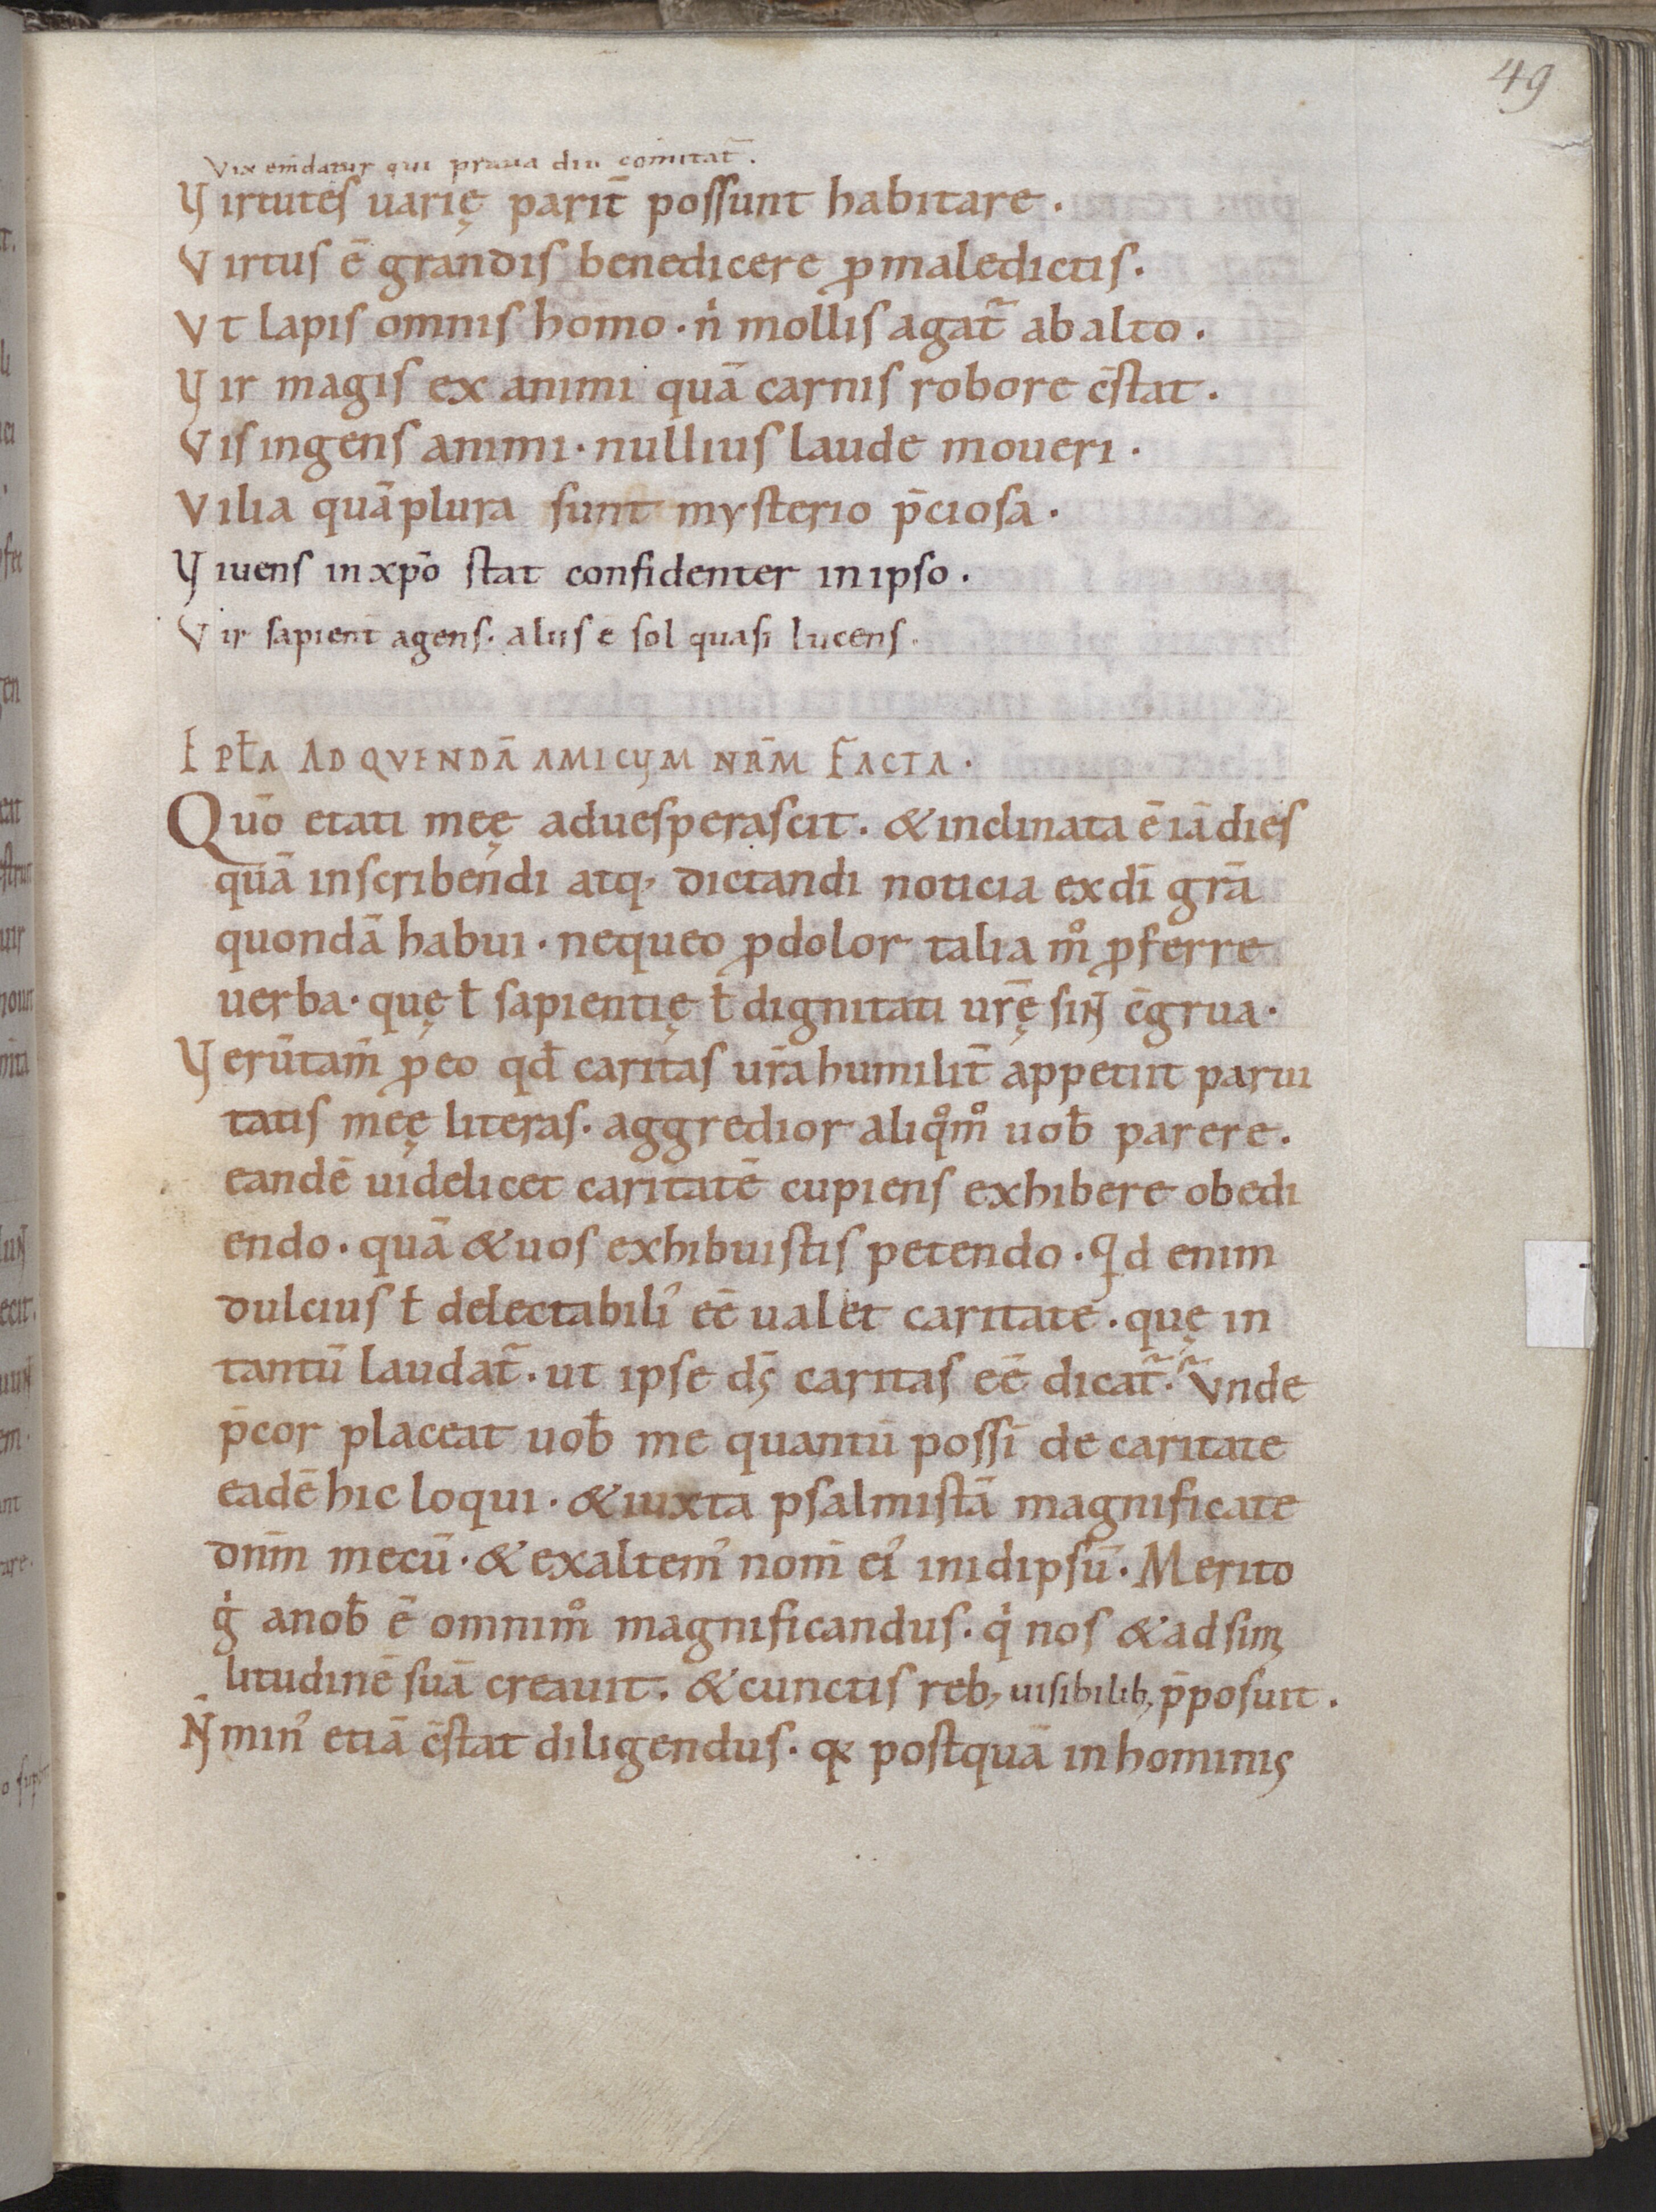 49
Vix em̄datur qui praua diu comitat᷑.
Virtutes uarię parit̄ possunt habitare.
Virtus ē grandis benedicere ꝓmaledictis.
Vt lapis omnis homo. n̍ mollis agat᷑ ab alto.
Vir magis ex animi quā carnis robore c̄stat.
Vis ingens animi. nullius laude moueri.
Vilia quā plura sunt mysterio p̄ciosa.
Viuens in xp̄o stat confidenter in ipso.
Vir sapient̄ agens. aliis ē sol quasi lucens.
EPƚA AD QVENDĀ AMICVM NR̄M FACTA.
Quō etati meę aduesperascit. & inclinata ē iā dies
quā in scribendi atq, dictandi noticia ex dī gr̄a
quondā habui. nequeo ꝓdolor talia m̊ ꝓferre
uerba. quę ƚ sapientię ƚ dignitati ur̄ę sin̄ c̄grua.
Verūtam̄ ꝓ eo qđ caritas ur̄a humilit̄ appetiit parui
tatis meę literas. aggredior aliq̊m̊ uoƀ parere.
eandē uidelicet caritatē cupiens exhibere obedi
endo. quā & uos exhibuistis petendo. Qͥd enim
dulcius ƚ delectabili᾿ eē ualet caritate. quę in
tantū laudat᷑. ut ipse ds̄ caritas eē dicat᷑. Vnde
p̄cor placeat uoƀ me quantū possī de caritate
eadē hic loqui. & iuxta psalmistā magnificate
dnm̄ mecū. & exaltem᾿ nom̄ ei᾿ in idipsū. Merito
g̍ a noƀ ē omnim̊ magnificandus. q̍ nos & ad simi
litudinē suā creauit. & cunctis reb, uisibilib, p̄posuit.
N̄ min᾿ etiā c̄stat diligendus. qꝛ postquā in hominis